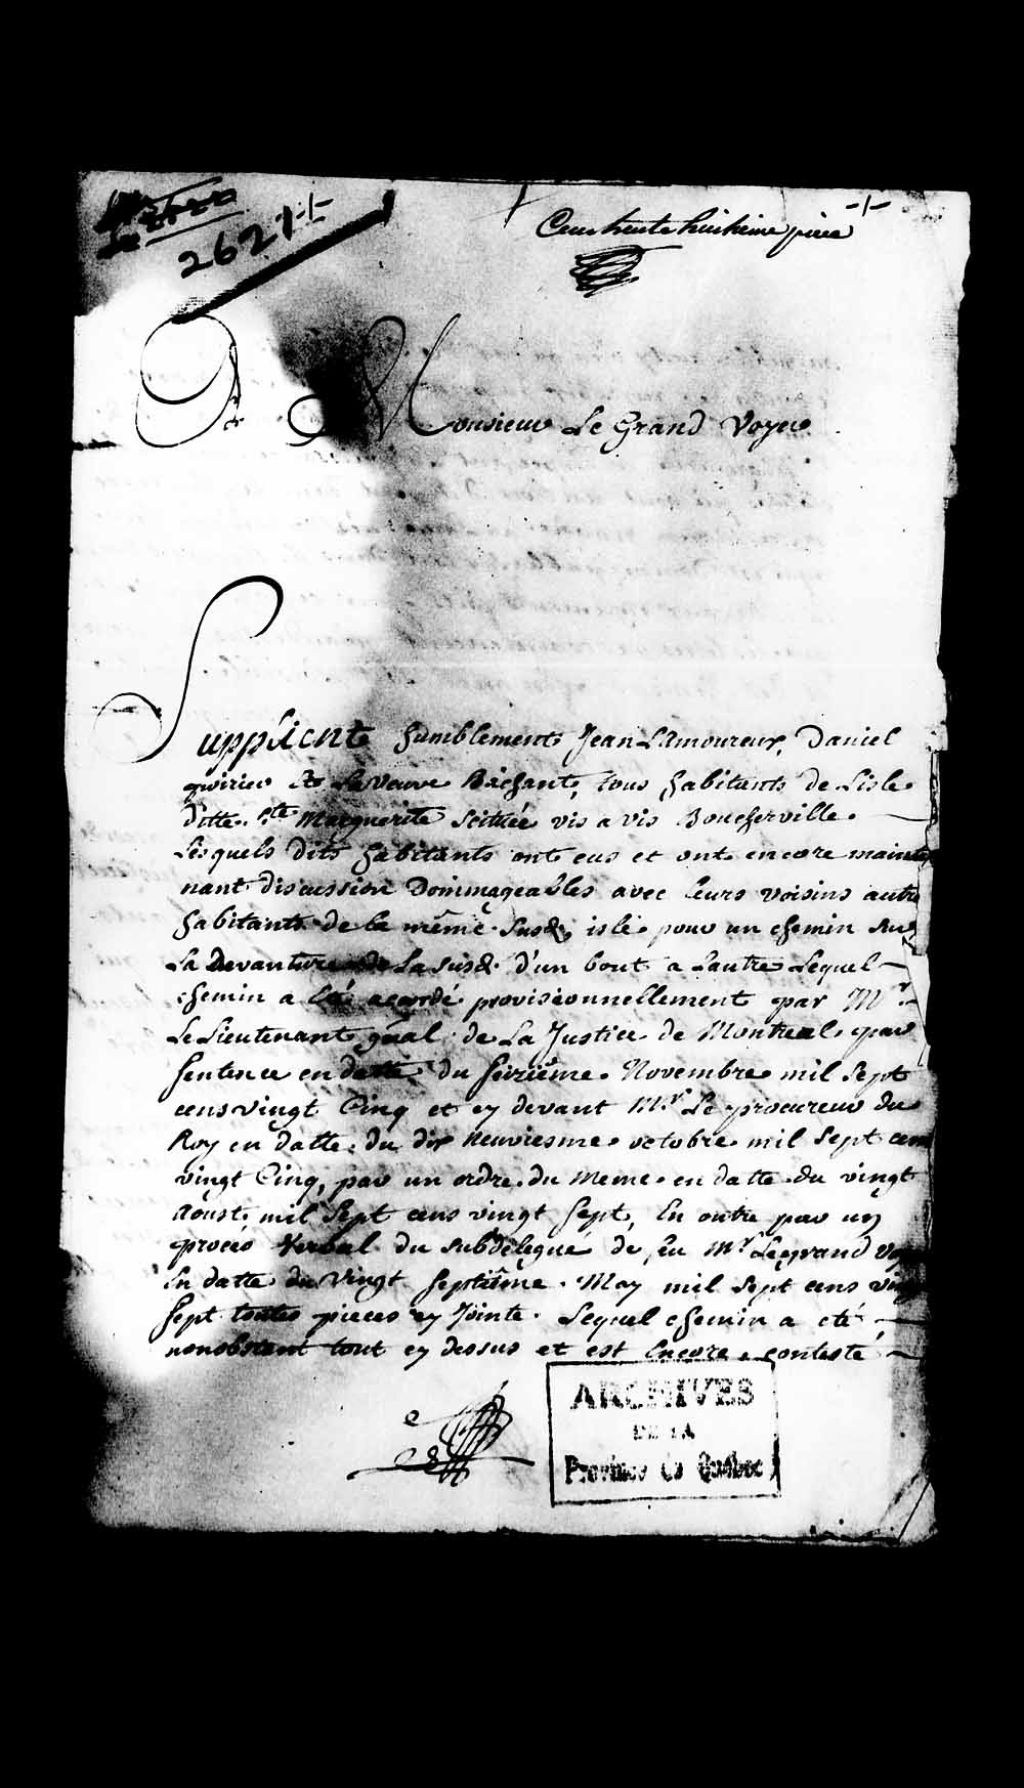 2621
Cent trente huitieme piece
A Monsieur Le Grand Voyer
Supplient humblement Jean Lamoureux, Daniel
poirier Et la veuve Bachant, tous habitants de Lisle
ditte Ste Marguerite scituée vis a vis Boucherville.
Lesquels dits habitants ont eus et ont encore mainte
nant discussion Dommageables avec leurs voisins autre
habitants de la même susd. isle pour un chemin sur
La Devanture de La susd. d'un bout a Lautre Lequel
chemin a été acordé provisionnellement par Mr.
Le Lieutenant gñal de La Justice de Montreal par
sentence en datte du sixiême Novembre mil sept
cens vingt Cinq et cy devant Mr. Le procureur du
Roy en datte du dix neuviesme octobre mil sept cens
vingt Cinq, par un ordre du meme en datte du vingt
Aoust mil sept cens vingt sept, En outre par un
procés Verbal du subdélegué de feu Mr. Legrand voy
En datte du vingt septiême May mil sept cens ving
sept toutes pieces cy Jointe. Lequel chemin a eté
nonobstant tout cy dessus et est Encore contesté
ARCHIVES
DE LA
Province de Québec